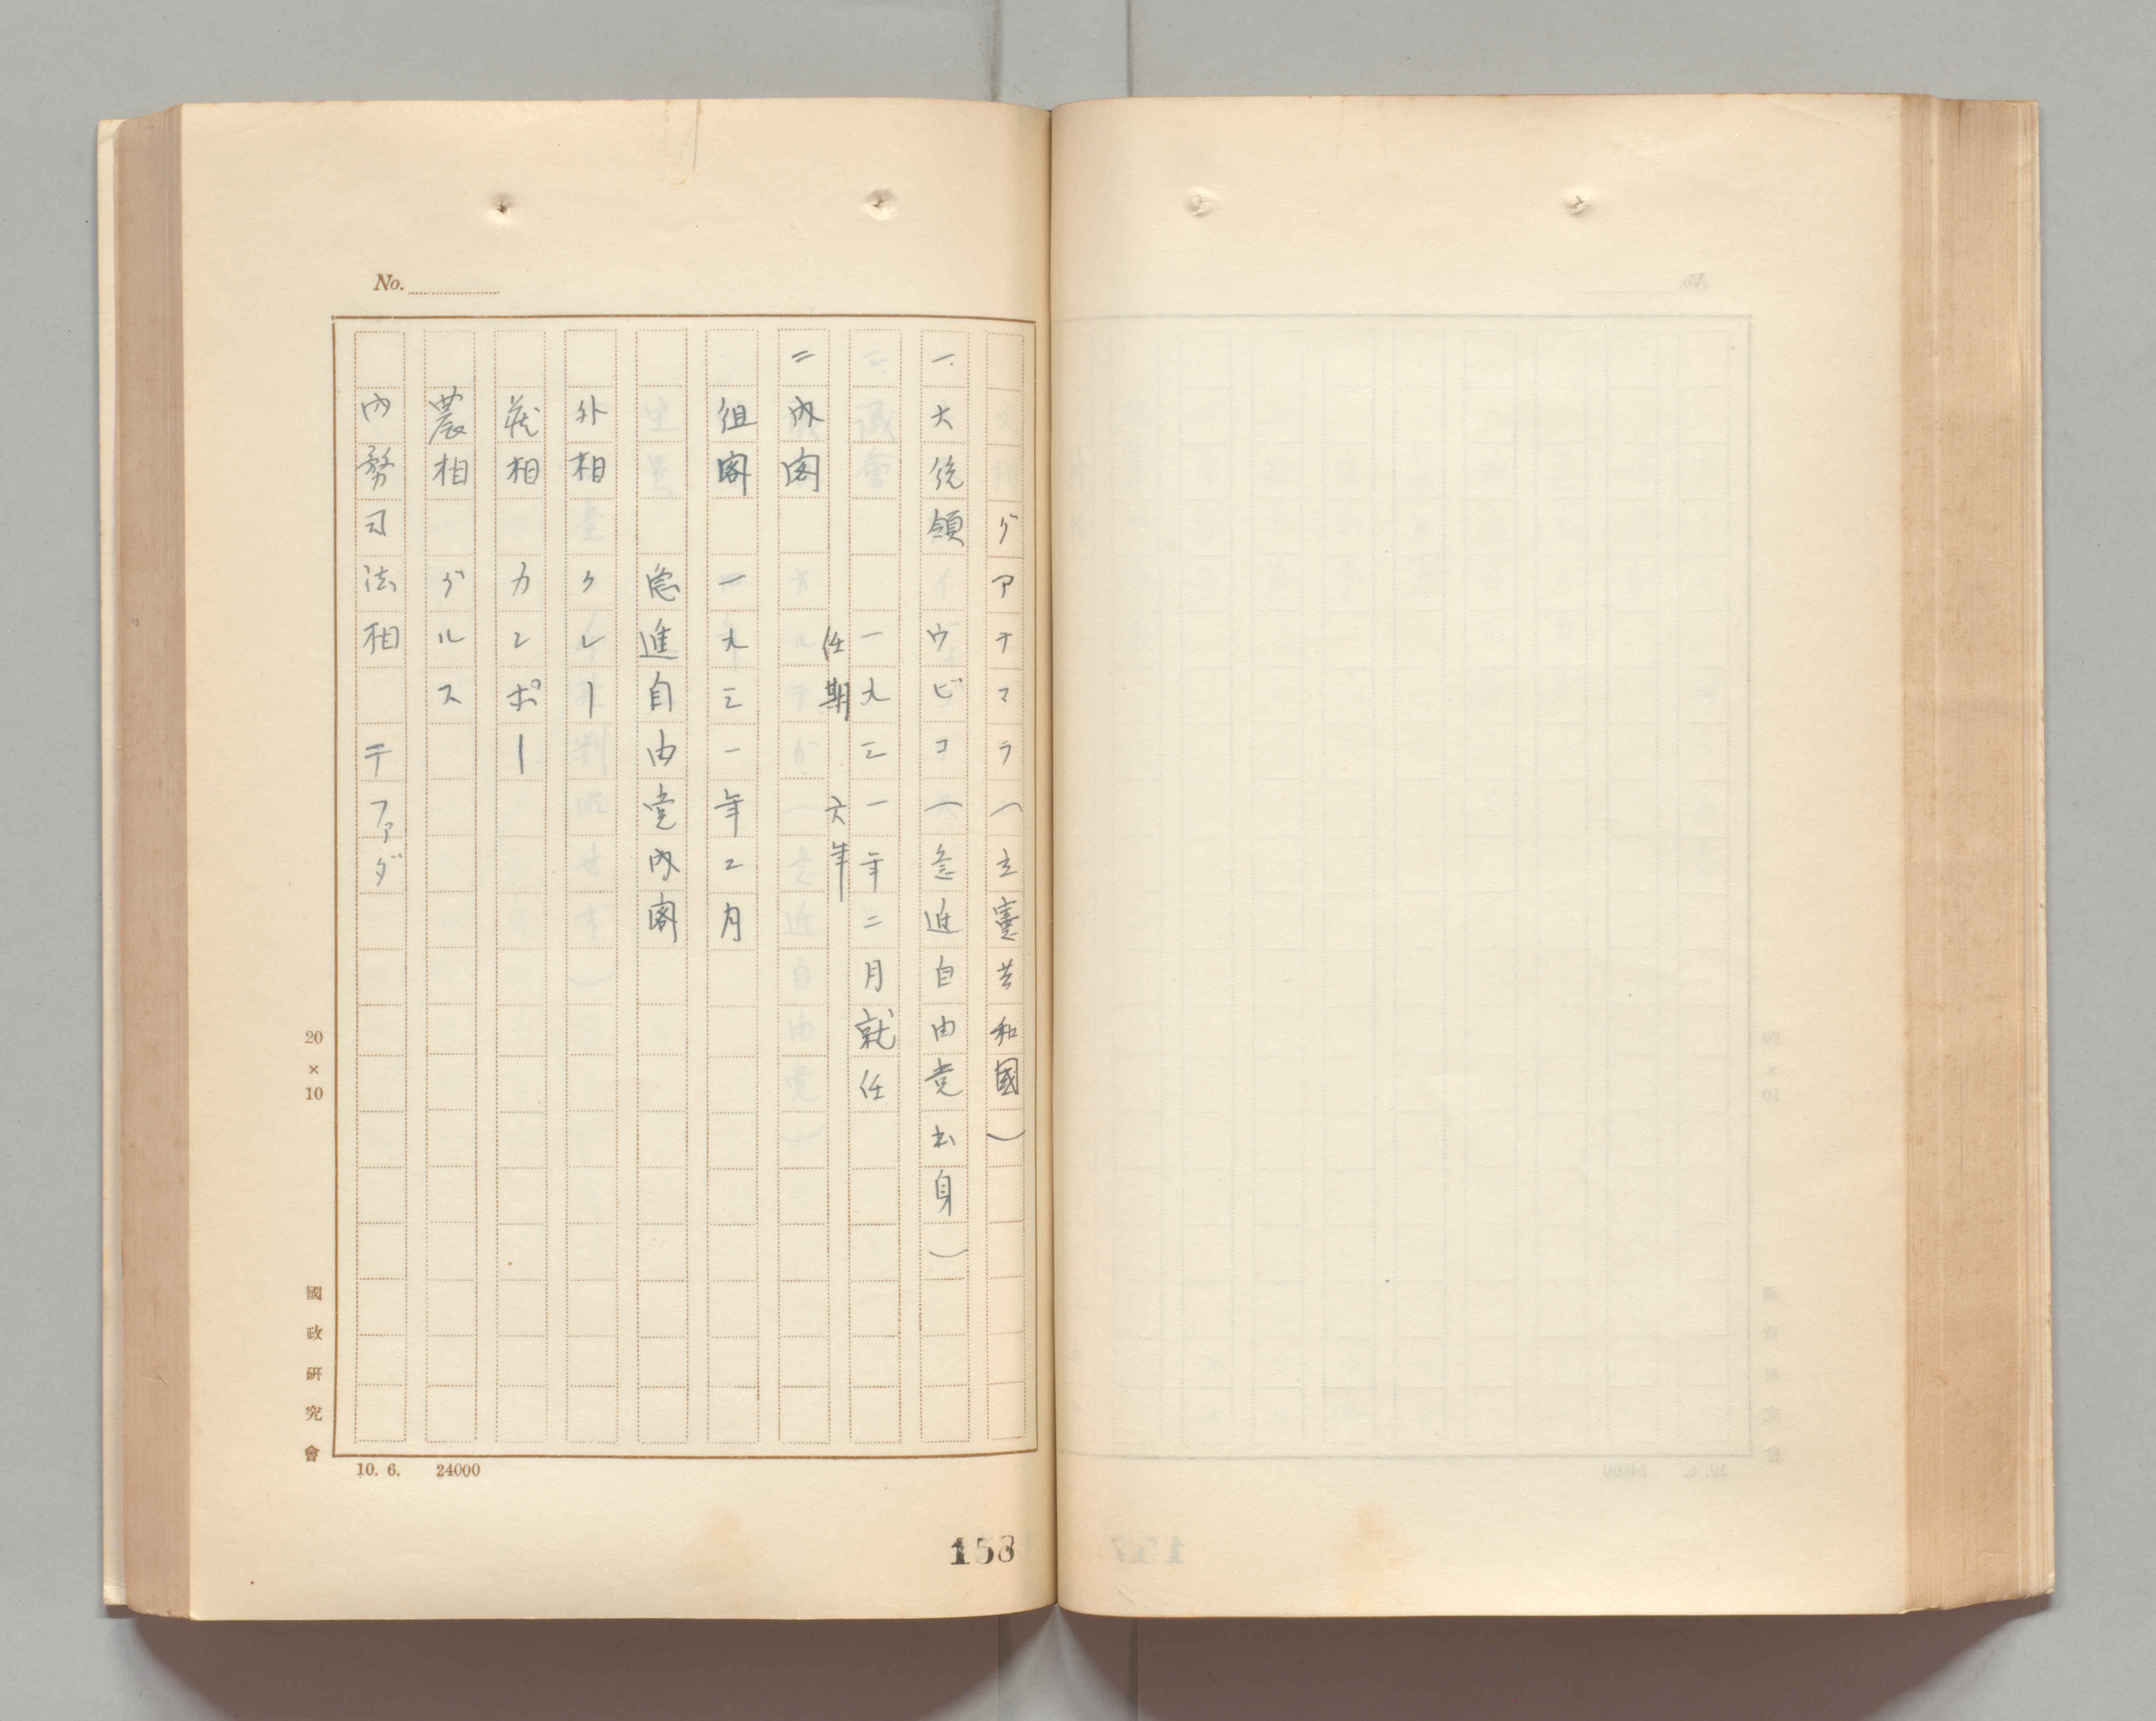 No.
グアテマラ（立憲共和國）
一．大統領　ウビコ（急進自由党出身）
一九三一年二月就任
任期　六年
二　內閣
組閣　一九三一年二月
急進自由党內閣
外相　クレー
蔵相　カンポー
農相　グルス
內務司法相　テファダ
20×10
國政研究會
10. 6.　24000
158